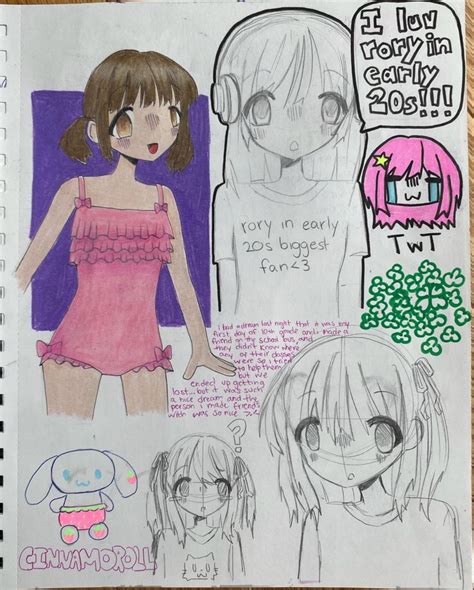 I luv
rory in
early
20s!!!
rory in early
20s biggest
fan<3
TwT
i had a dream last night that it was my
first day of 10th grade and i made a
friend on the school bus, and
they didn't know where
any of their classes
were so i tried
to help them
but we
ended up getting
lost... but it was such
a nice dream and the
person i made friends
with was so nice >.<
?
CINNAMOROLL